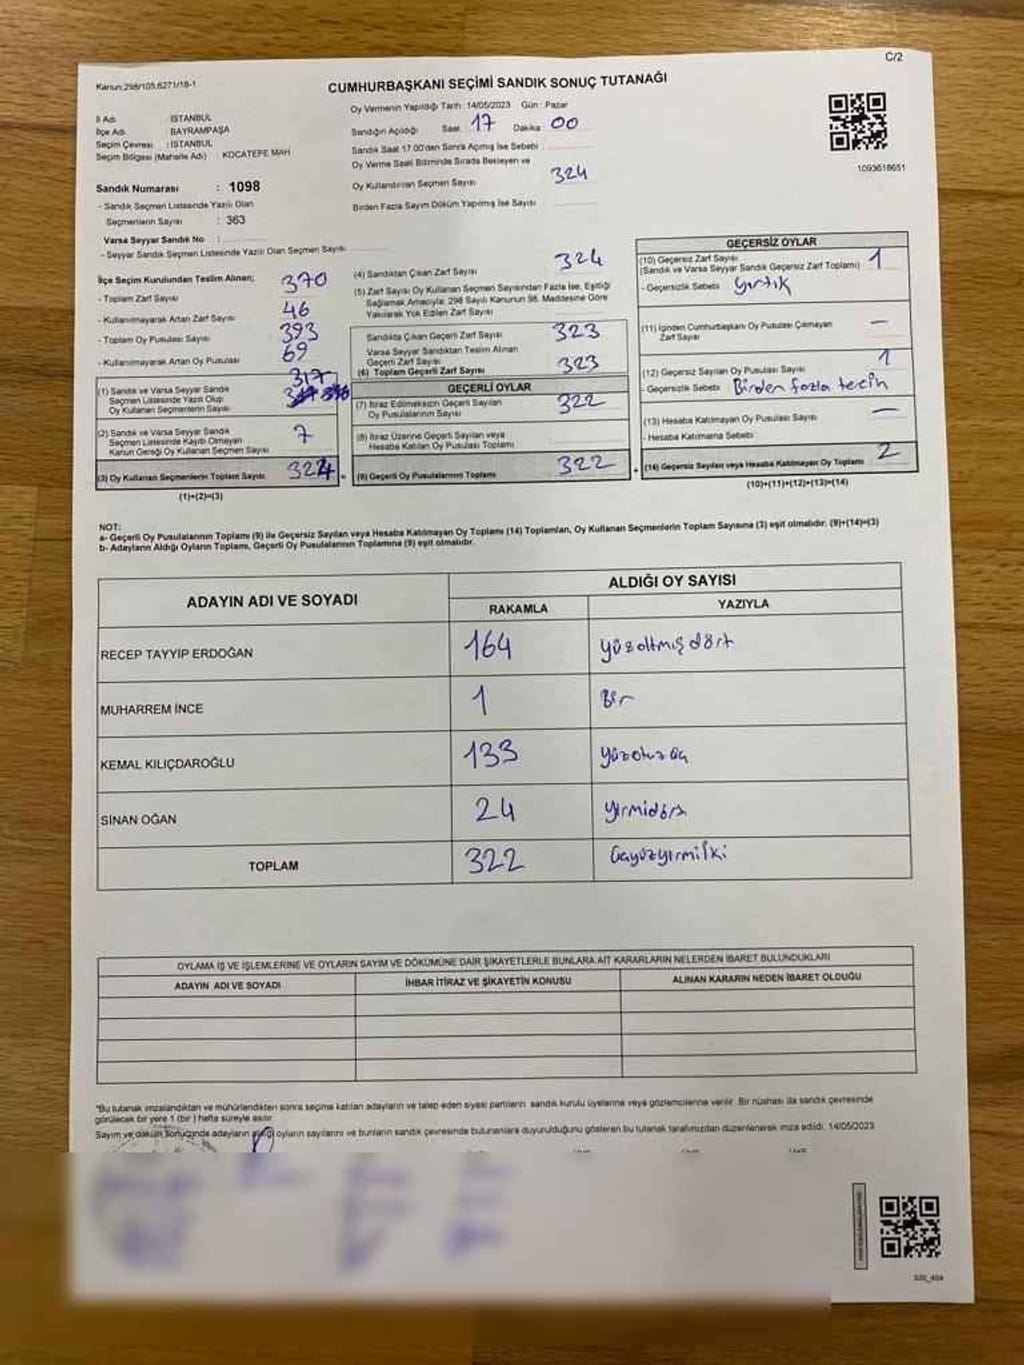 C/2
Kanun:298/105,6271/18-1
CUMHURBAŞKANI SEÇİMİ SANDIK SONUÇ TUTANAĞI
İl Adı : İSTANBUL
İlçe Adı : BAYRAMPAŞA
Seçim Çevresi : İSTANBUL
Seçim Bölgesi (Mahalle Adı) : KOCATEPE MAH
Sandık Numarası : 1098
- Sandık Seçmen Listesinde Yazılı Olan
Seçmenlerin Sayısı : 363
Varsa Seyyar Sandık No :
- Seyyar Sandık Seçmen Listesinde Yazılı Olan Seçmen Sayısı
Oy Vermenin Yapıldığı Tarih : 14/05/2023 Gün : Pazar
Sandığın Açıldığı Saat 17 Dakika 00
Sandık Saat 17:00'den Sonra Açılmış İse Sebebi
Oy Verme Saati Bitiminde Sırada Bekleyen ve
Oy Kullandırılan Seçmen Sayısı 324
Birden Fazla Sayım Döküm Yapılmış İse Sayısı
1093618651
İlçe Seçim Kurulundan Teslim Alınan;
- Toplam Zarf Sayısı 370
- Kullanılmayarak Artan Zarf Sayısı 46
- Toplam Oy Pusulası Sayısı 393
- Kullanılmayarak Artan Oy Pusulası 69
(1) Sandık ve Varsa Seyyar Sandık
Seçmen Listesinde Yazılı Olup
Oy Kullanan Seçmenlerin Sayısı 317
(2) Sandık ve Varsa Seyyar Sandık
Seçmen Listesinde Kayıtlı Olmayan
Kanun Gereği Oy Kullanan Seçmen Sayısı 7
(3) Oy Kullanan Seçmenlerin Toplam Sayısı 324 =
(1)+(2)=(3)
(4) Sandıktan Çıkan Zarf Sayısı 324
(5) Zarf Sayısı Oy Kullanan Seçmen Sayısından Fazla İse, Eşitliği
Sağlamak Amacıyla; 298 Sayılı Kanunun 98. Maddesine Göre
Yakılarak Yok Edilen Zarf Sayısı
Sandıkta Çıkan Geçerli Zarf Sayısı 323
Varsa Seyyar Sandıktan Teslim Alınan
Geçerli Zarf Sayısı
(6) Toplam Geçerli Zarf Sayısı 323
GEÇERLİ OYLAR
(7) İtiraz Edilmeksizin Geçerli Sayılan
Oy Pusulalarının Sayısı 322
(8) İtiraz Üzerine Geçerli Sayılan veya
Hesaba Katılan Oy Pusulası Toplamı
(9) Geçerli Oy Pusulalarının Toplamı 322 +
GEÇERSİZ OYLAR
(10) Geçersiz Zarf Sayısı
(Sandık ve Varsa Seyyar Sandık Geçersiz Zarf Toplamı) 1
- Geçersizlik Sebebi yırtık
(11) İçinden Cumhurbaşkanı Oy Pusulası Çıkmayan
Zarf Sayısı —
(12) Geçersiz Sayılan Oy Pusulası Sayısı 1
- Geçersizlik Sebebi Birden fazla tercih
(13) Hesaba Katılmayan Oy Pusulası Sayısı —
- Hesaba Katılmama Sebebi
(14) Geçersiz Sayılan veya Hesaba Katılmayan Oy Toplamı 2
(10)+(11)+(12)+(13)=(14)
NOT:
a- Geçerli Oy Pusulalarının Toplamı (9) ile Geçersiz Sayılan veya Hesaba Katılmayan Oy Toplamı (14) Toplamları, Oy Kullanan Seçmenlerin Toplam Sayısına (3) eşit olmalıdır. (9)+(14)=(3)
b- Adayların Aldığı Oyların Toplamı, Geçerli Oy Pusulalarının Toplamına (9) eşit olmalıdır.
ADAYIN ADI VE SOYADI
ALDIĞI OY SAYISI
RAKAMLA YAZIYLA
RECEP TAYYİP ERDOĞAN 164 yüzaltmışdört
MUHARREM İNCE 1 Bir
KEMAL KILIÇDAROĞLU 133 yüzotuzüç
SİNAN OĞAN 24 yirmidört
TOPLAM 322 üçyüzyirmiİki
OYLAMA İŞ VE İŞLEMLERİNE VE OYLARIN SAYIM VE DÖKÜMÜNE DAİR ŞİKAYETLERLE BUNLARA AİT KARARLARIN NELERDEN İBARET BULUNDUKLARI
ADAYIN ADI VE SOYADI İHBAR İTİRAZ VE ŞİKAYETİN KONUSU ALINAN KARARIN NEDEN İBARET OLDUĞU
*Bu tutanak imzalandıktan ve mühürlendikten sonra seçime katılan adayların ve talep eden siyasi partilerin sandık kurulu üyelerine veya gözlemcilerine verilir. Bir nüshası da sandık çevresinde
görülecek bir yere 1 (bir) hafta süreyle asılır.
Sayım ve döküm sonucunda adayların aldığı oyların sayılarını ve bunların sandık çevresinde bulunanlara duyurulduğunu gösteren bu tutanak tarafımızdan düzenlenerek imza edildi. 14/05/2023